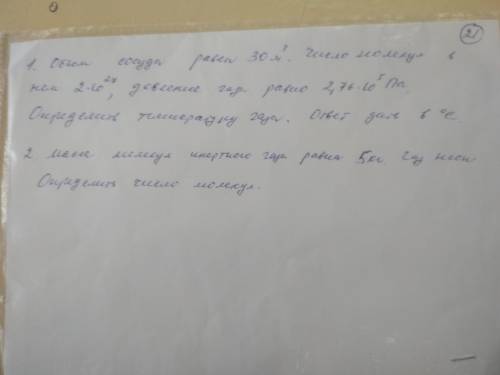 21
1. Объем сосуда равен 30 м³. Число молекул в
нем 2·10²⁷, давление газа равно 2,76·10⁵ Па.
Определить температуру газа. Ответ дать в °C
2 масса молекул инертного газа равна 5 кг Газ неон
Определить число молекул.